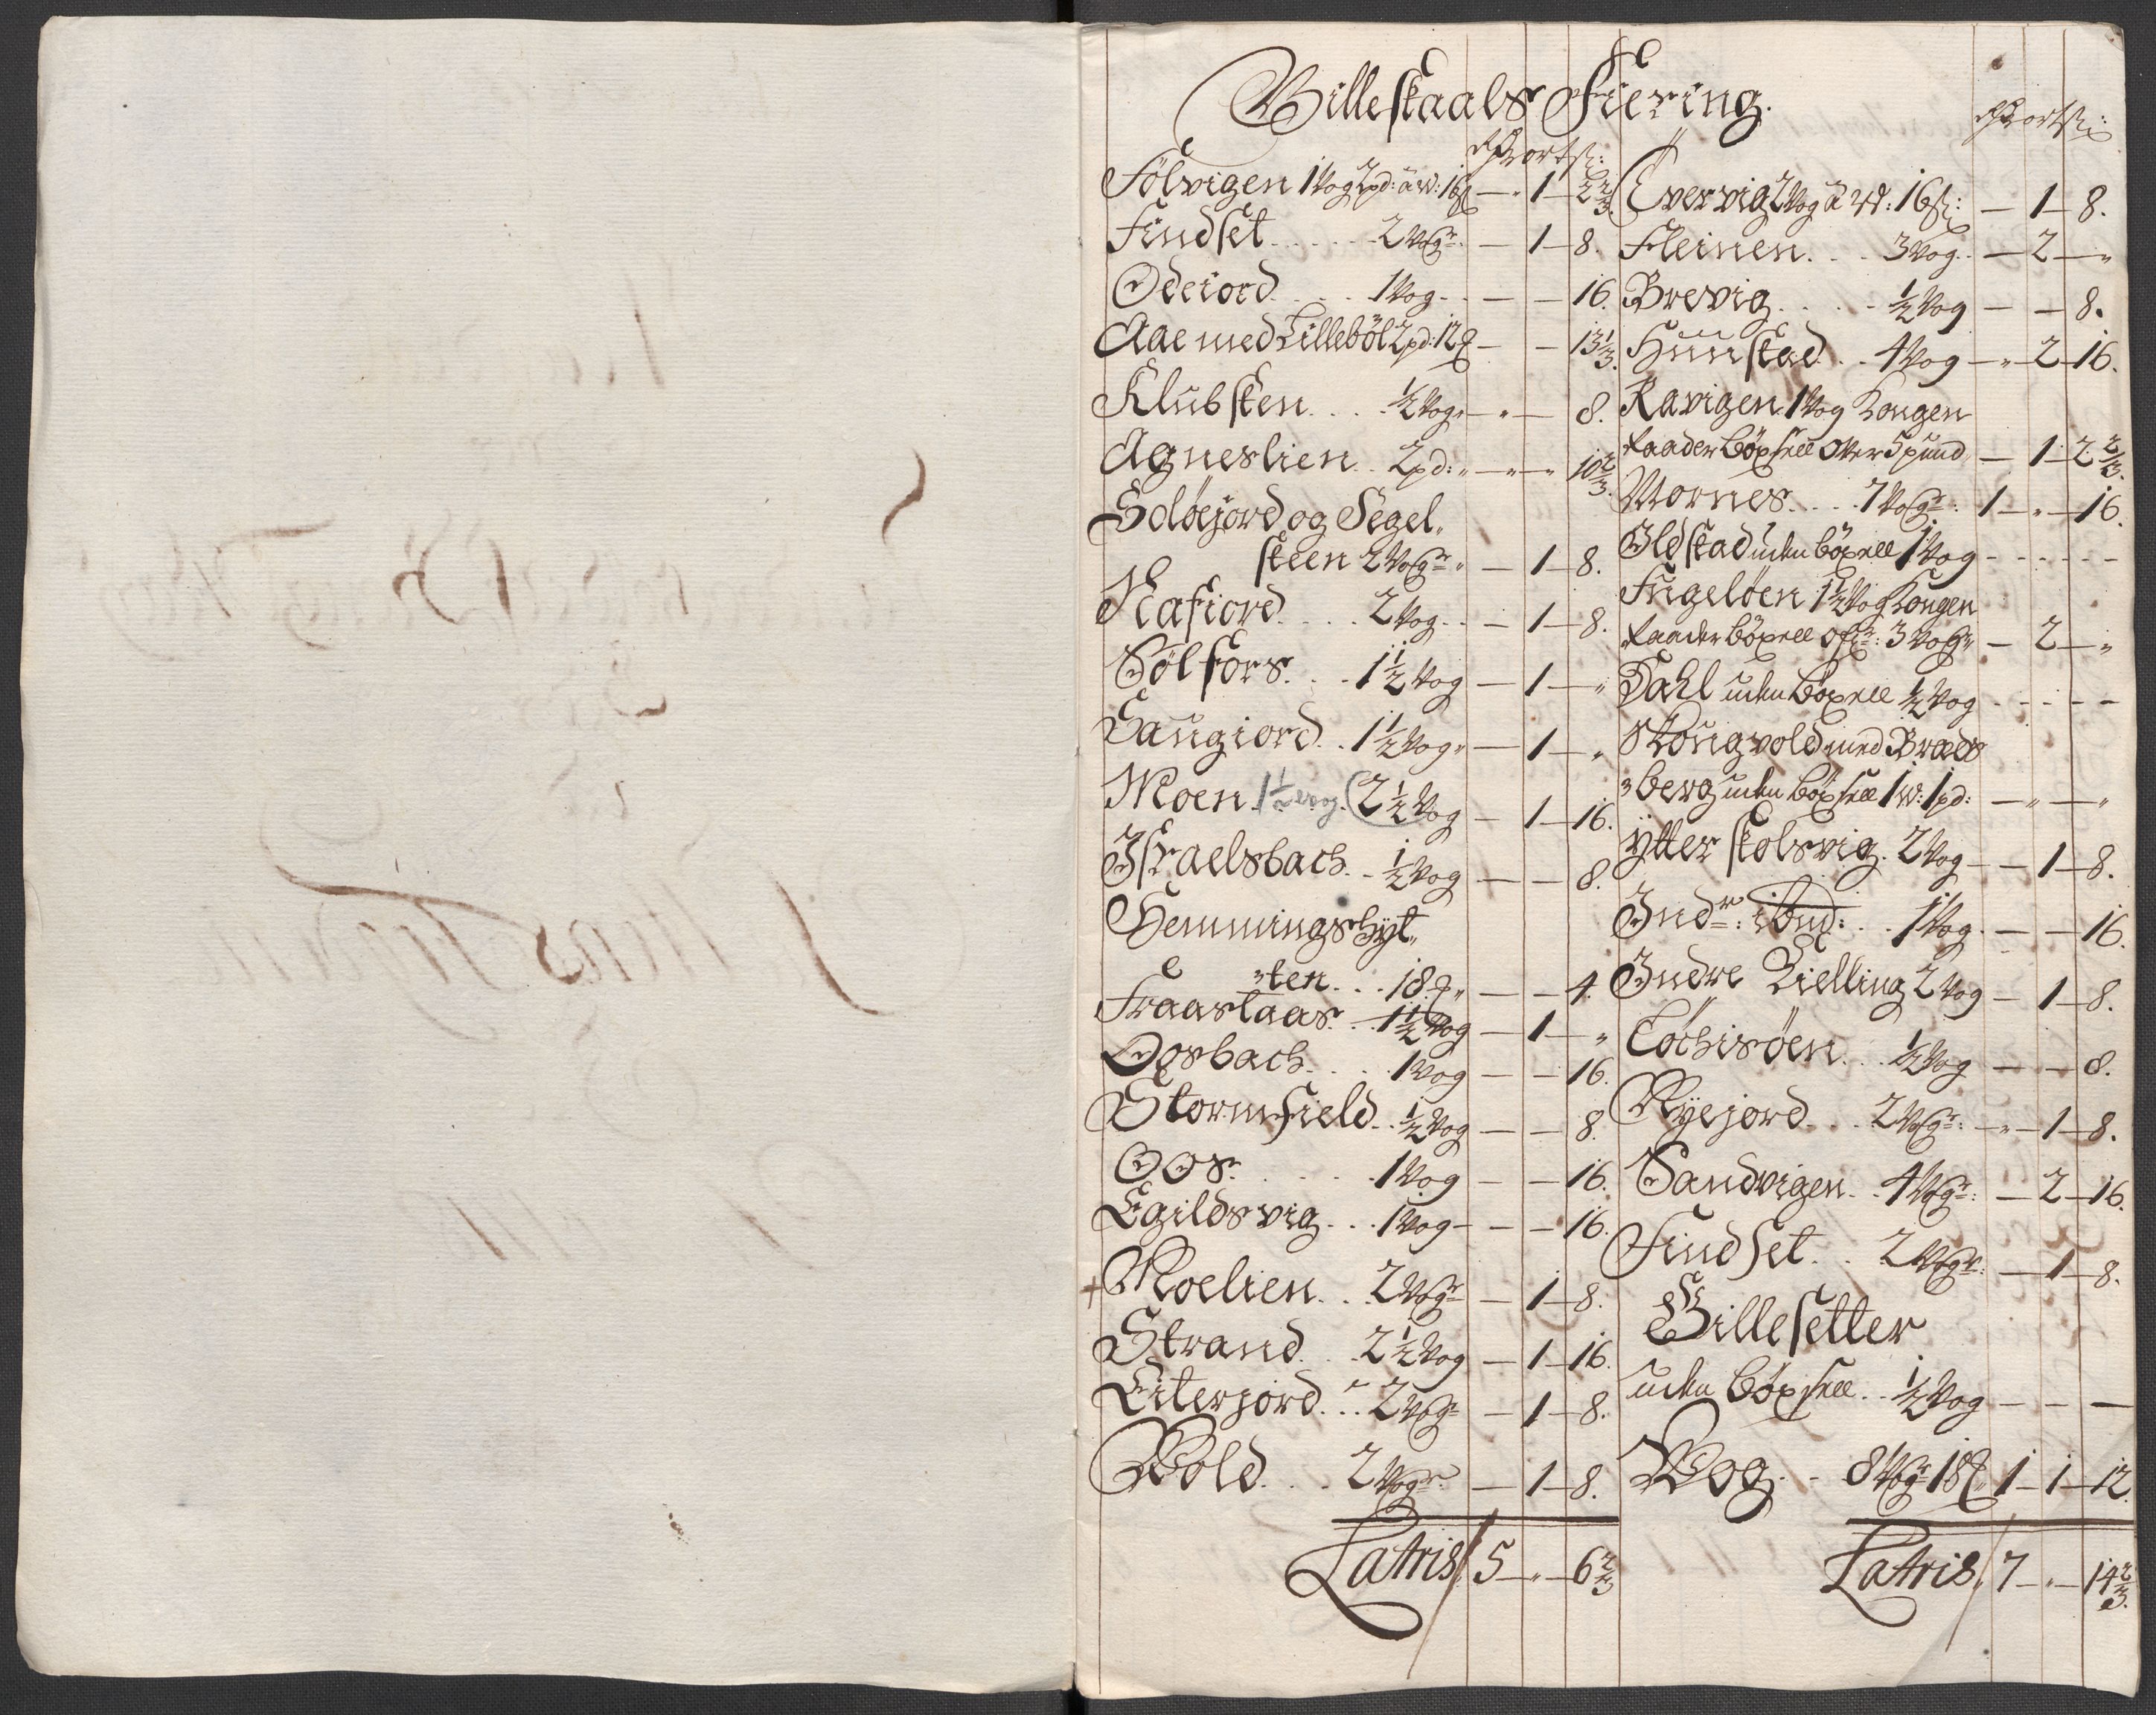 Billeskaals Fiering.
Rdr ort sk:
Fölvigen 1 Vog 2 pd: à W: 16 sk — " 1 — 2 2/3
Findset . . . . . 2 Vogr — 1 — 8.
Odeiord . . . . 1 Vog . — — 16.
Aae med Lilleböl 2 pd: 12 — — 13 1/3.
Klubsken . . . 1/2 Vog " — " — 8.
Agneslien . . 2 pd: " — " — " 10 2/3.
Solöejord og Segel"
steen 2 Vogr " — 1 — 8.
Nafiord . . . . 2 Vog . . — 1 — 8.
Sölfors . . . 1 1/2 Vog — 1 — "
Saugiord . . 1 1/2 Vog " — 1 — "
Moen . 1 1/2 vog . (2 1/2 Vog — 1 — 16.
Israelsbach . - 1/2 Vog — — 8.
Hemmingshyt"
"ten . . . 18 " — — 4.
Fraastaas . . 1 1/2 Vog — 1 — "
Oosbach . . . . 1 Vog — — 16.
Stormfield . . 1/2 Vog — — 8.
Oos . . . . . 1 Vog — — 16.
Egildsvig . . . 1 Vog — — — 16.
+ Moelien . . . 2 Vogr — 1 — 8.
Strand . . . 2 1/2 Vog — 1 — 16.
Eiterjord . . . 2 Vogr — 1 — 8.
Wold . . . . 2 Vogr — 1 — 8.
Latris / 5 — " — 6 2/3
Rdr ort sk:
Evervig 2 Vog à W: 16 sk: — 1 — 8.
Fleinen . . . 3 Vog . . — 2 — "
Brevig . . . . - 1/2 Vog — — 8.
Hunstad . . 4 Vog — " 2 — 16.
Ravigen 1 Vog Kongen
raader böxsell over 5 pund — 1 — 2 2/3.
Mornes . . . . 7 Vogr . 1 — " — 16.
Oldstad uden böxsell 1 Vog - - - - - -
Fugelöen 1 1/2 Vog Kongen
raader böxsell ofr: 3 Vogr — 2 — "
Dahl uden böxsell 1/2 Vog - - - - -
Skougvold med Breds
"berg uden böxsell 1 W: 1 pd: — " — "
ÿtter skolsvig . 2 Vog — — 1 — 8.
Indr: ibid: . . 1 Vog . — — 16.
Indre Kielling 2 Vog — 1 — 8.
Löchisöen . . . 1/2 Vog — — 8.
Rÿejord . . . 2 Vogr: — " — 1 — 8.
Sandvigen . . 4 Vogr: — 2 — 16.
Findset . . 2 Vogr: — 1 — 8.
Gillesetter
uden böxsell . . 1/2 Vog — - - —
Wog . . - 8 Vogr 18 " 1 — 1 — 12.
Latris / 7 — " — 14 2/3.